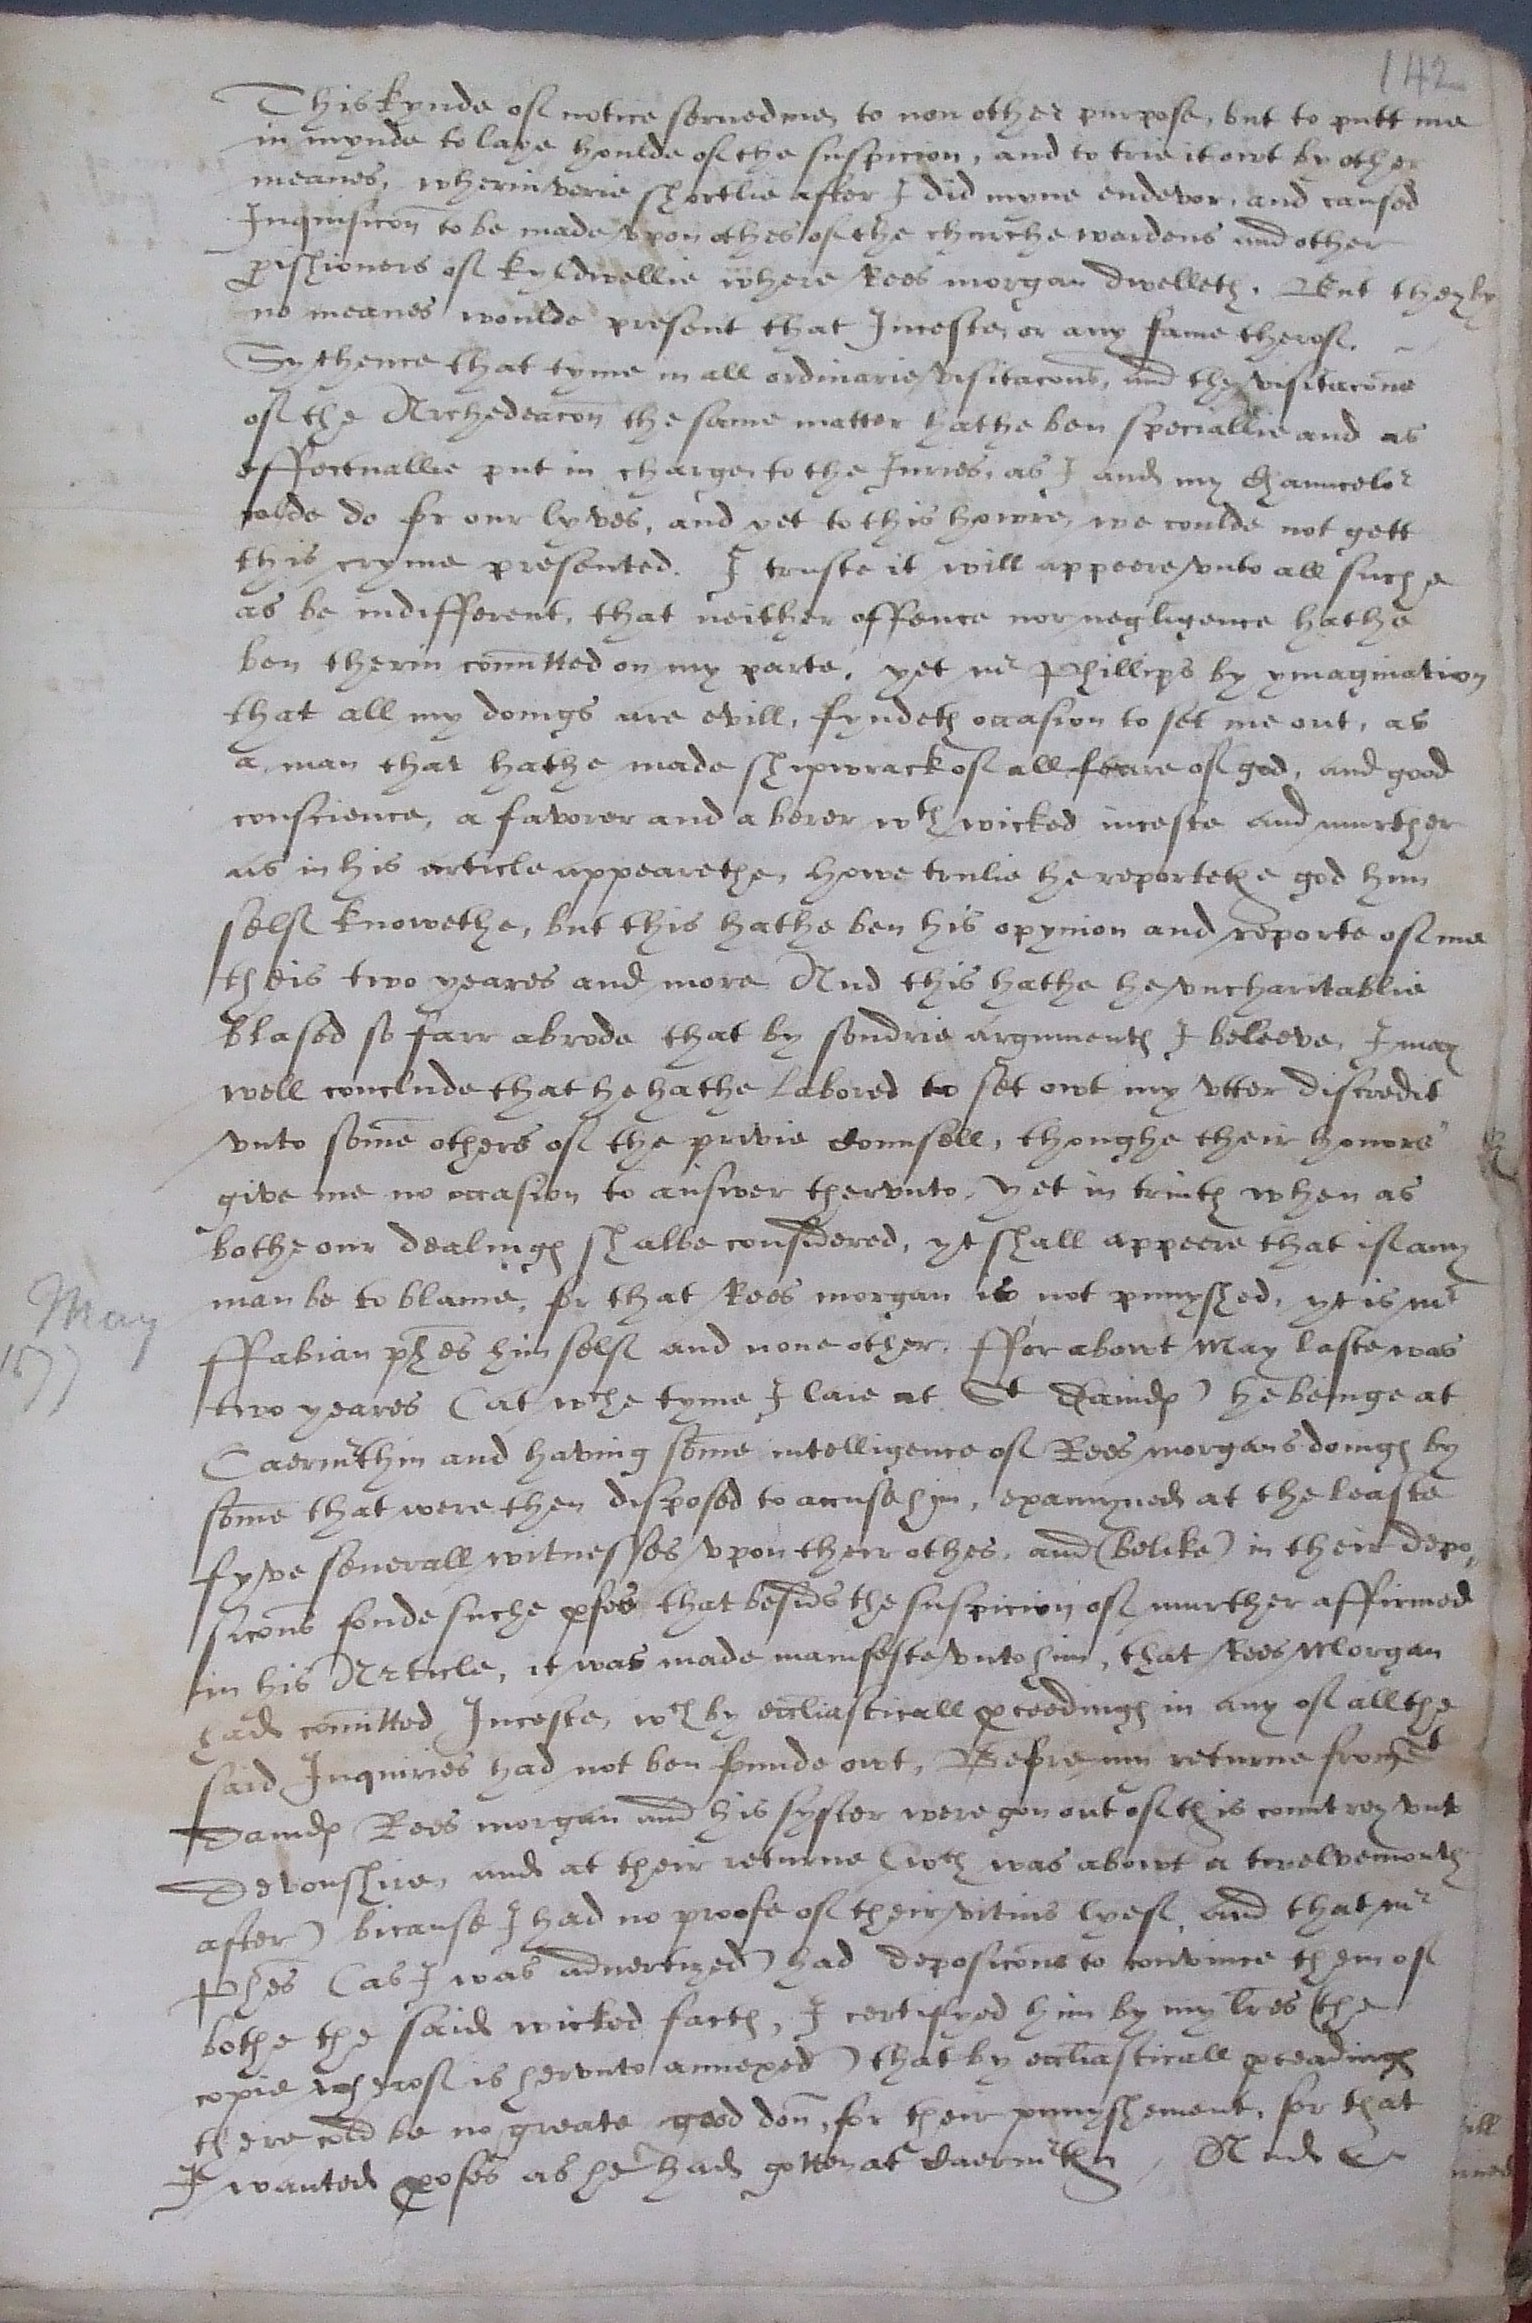 142
This kynde of notice served me, to non other purpose, but to putt me
in mynde to laye houlde of the suspicion, and to trie it owt by other
meanes, wherin verie shortlie after I did myne endevor, and caused
Inquisicon to be made upon othes of the churche wardens and other
pishioners of Kyldwellie where Rees morgan dwelleth. But they by
no meanes woulde present that Inceste, or any fame therof.
Sythence that tyme in all ordinarie visitacons, and the visitacone
of the Archedeacon the same matter hathe ben speciallie and as
effectuallie put in charge, to the Juries, as I and my Chauncelor
colde do for our lyves, and yet to this howre, we coulde not gett
this cryme presented. I truste it will appeere unto all suche
as be indifferent, that neither offence nor negligence hathe
ben therin comitted on my parte, yet mr Phillips by ymagination
that all my doings are evill, fyndeth occasion to set me out, as
a man that hathe made shipwrack of all feare of god, and good
conscience, a favorer and a berer wth wicked inceste and murther
as in his article appearethe, howe trulie he reportethe god him
self knowethe, but this hathe ben his opynion and reporte of me
theis two yeares and more And this hathe he uncharitablie
blased so farr abrode that by sondrie arguments I beleeve, I may
well conclude that he hathe labored to set owt my utter discredit
unto some others of the privie Counsell, thoughe their honors
give me no occasion to answer therunto, yet in truith when as
bothe our dealings shalbe considered, yt shall appeere that if any
man be to blame, for that Rees morgan is not punyshed, yt is mr
May
1577
ffabian phes him self and none other. ffor abowt May laste was
two yeares (at wche tyme I laie at St Davids) he beinge at
Caermthin and having some intelligence of Rees morgans doings by
some that were then disposed to accuse him, examyned at the leaste
fyve severall witnesses upon their othes, and (belike) in their depo,
sicons fonde suche pfes that besids the suspicion of murther affirmed
in his Article, it was made manifeste unto him, that Rees Morgan
had comitted Inceste, wch by eccliasticall pceedings in any of all the
said Inquiries had not ben founde owt, Before my returne from St
Davids Rees morgan and his syster were gon out of this countrey unto
Devonshire, and at their returne (wch was abowt a twelvemonth
after) bicause I had no proofe of their vitius lyef, and that mr
Phes (as I was advertized) had deposicons to convince them of
bothe the said wicked facts, I certifyed him by my lres (the
copie wherof is herunto annexed) that by eccliasticall pceadings
there cold be no greate good don, for their punyshement, for that
I wanted profes as he had gotten at Caermthen, And &